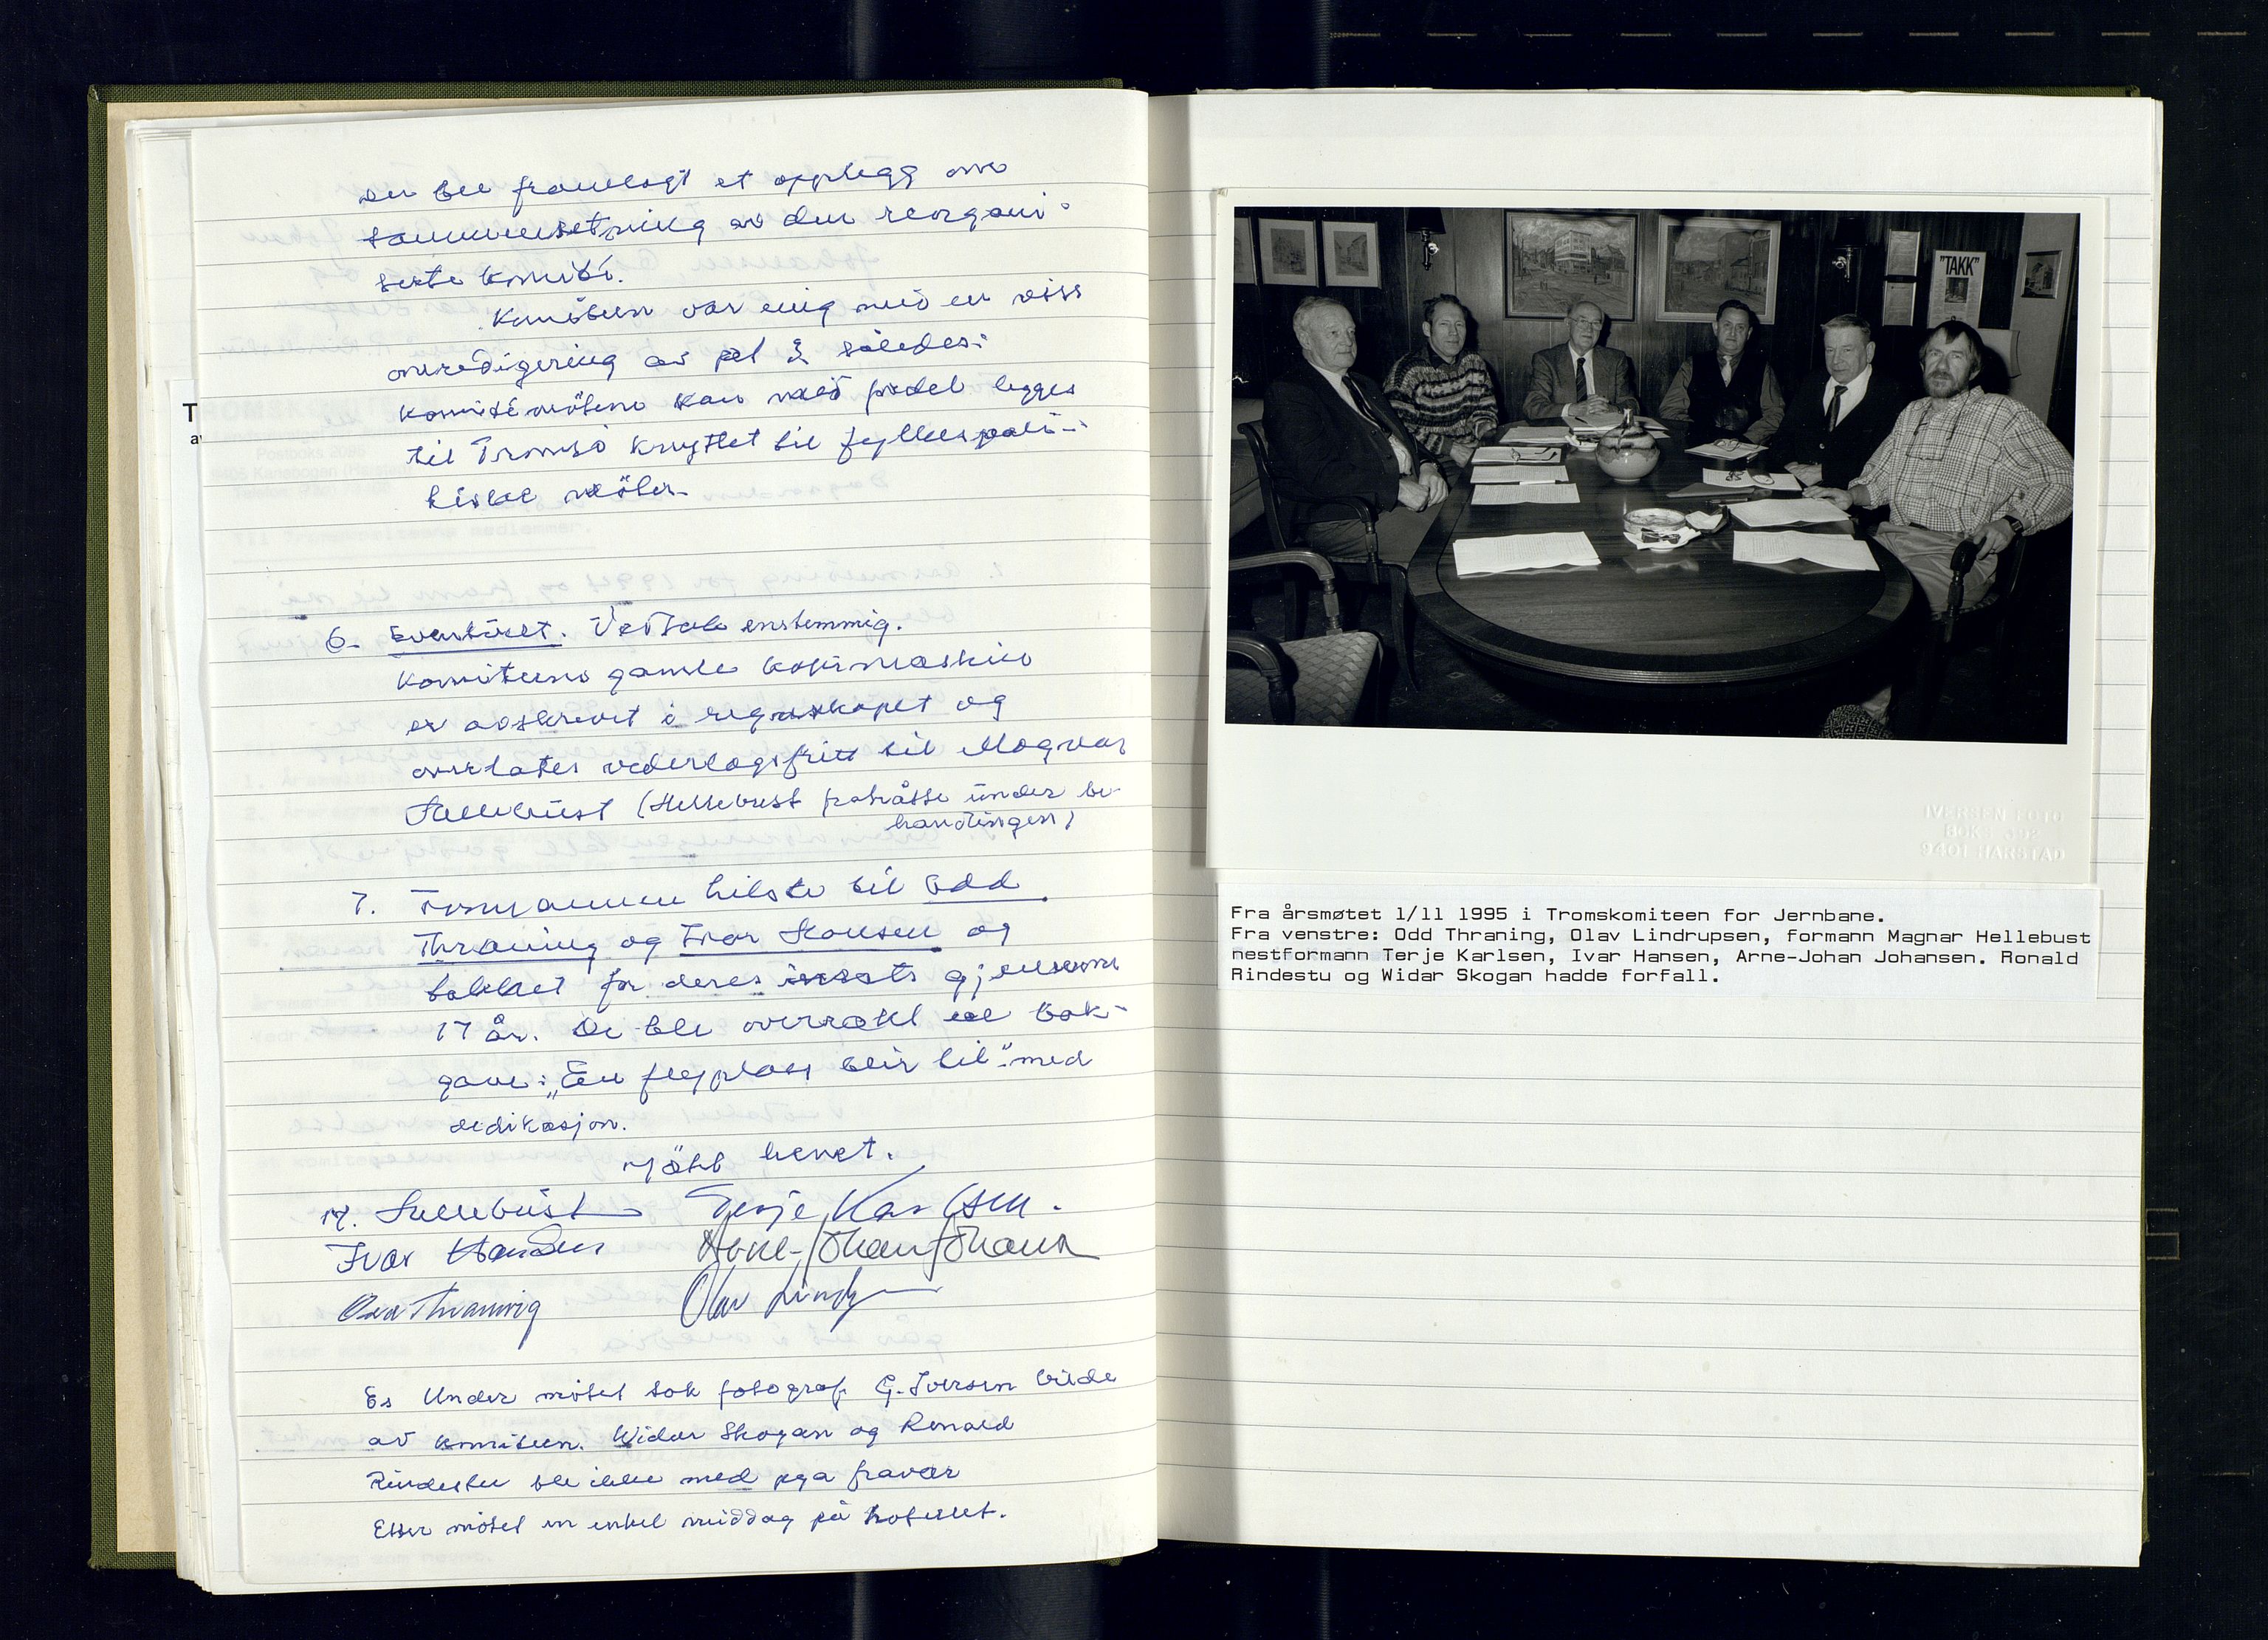 Det ble framlagt et opplegg om
sammensetning av den reorgani-
serte komité.
Komiteen var enig med en viss
omredigering av pkt 3 således:
Komitémötene kan med fordel legges
til Tromsö knyttet til fylkespoli-
tiske möter.
6. Eventuelt. Vedtak enstemmig.
Komiteens gamle kopimaskin
er avskrevet i regnskapet og
overlates vederlagsfritt til Magnar
Hellebust (Hellebust fratrådte under be-
handlingen)
7. Formannen hilste til Odd
Thraning og Ivar Hansen og
takket for deres innsats gjennom
17 år. De ble overrakt en bok-
gave: "En flyplass blir til" med
dedikasjon.
Möte hevet.
M. Hellebust Terje Karlsen.
Ivar Hansen Arne-Johan Johansen
Odd Thraning Olav Lindrupsen
Es Under mötet tok fotograf G. Iversen bilde
av komiteen. Widar Skogan og Ronald
Rindestu ble ikke med pga fravær
Etter mötet en enkel middag på hotellet.
T
a
"TAKK"
IVERSEN FOTO
BOKS 392
9401 HARSTAD
Fra årsmøtet 1/11 1995 i Tromskomiteen for Jernbane.
Fra venstre: Odd Thraning, Olav Lindrupsen, formann Magnar Hellebust
nestformann Terje Karlsen, Ivar Hansen, Arne-Johan Johansen. Ronald
Rindestu og Widar Skogan hadde forfall.